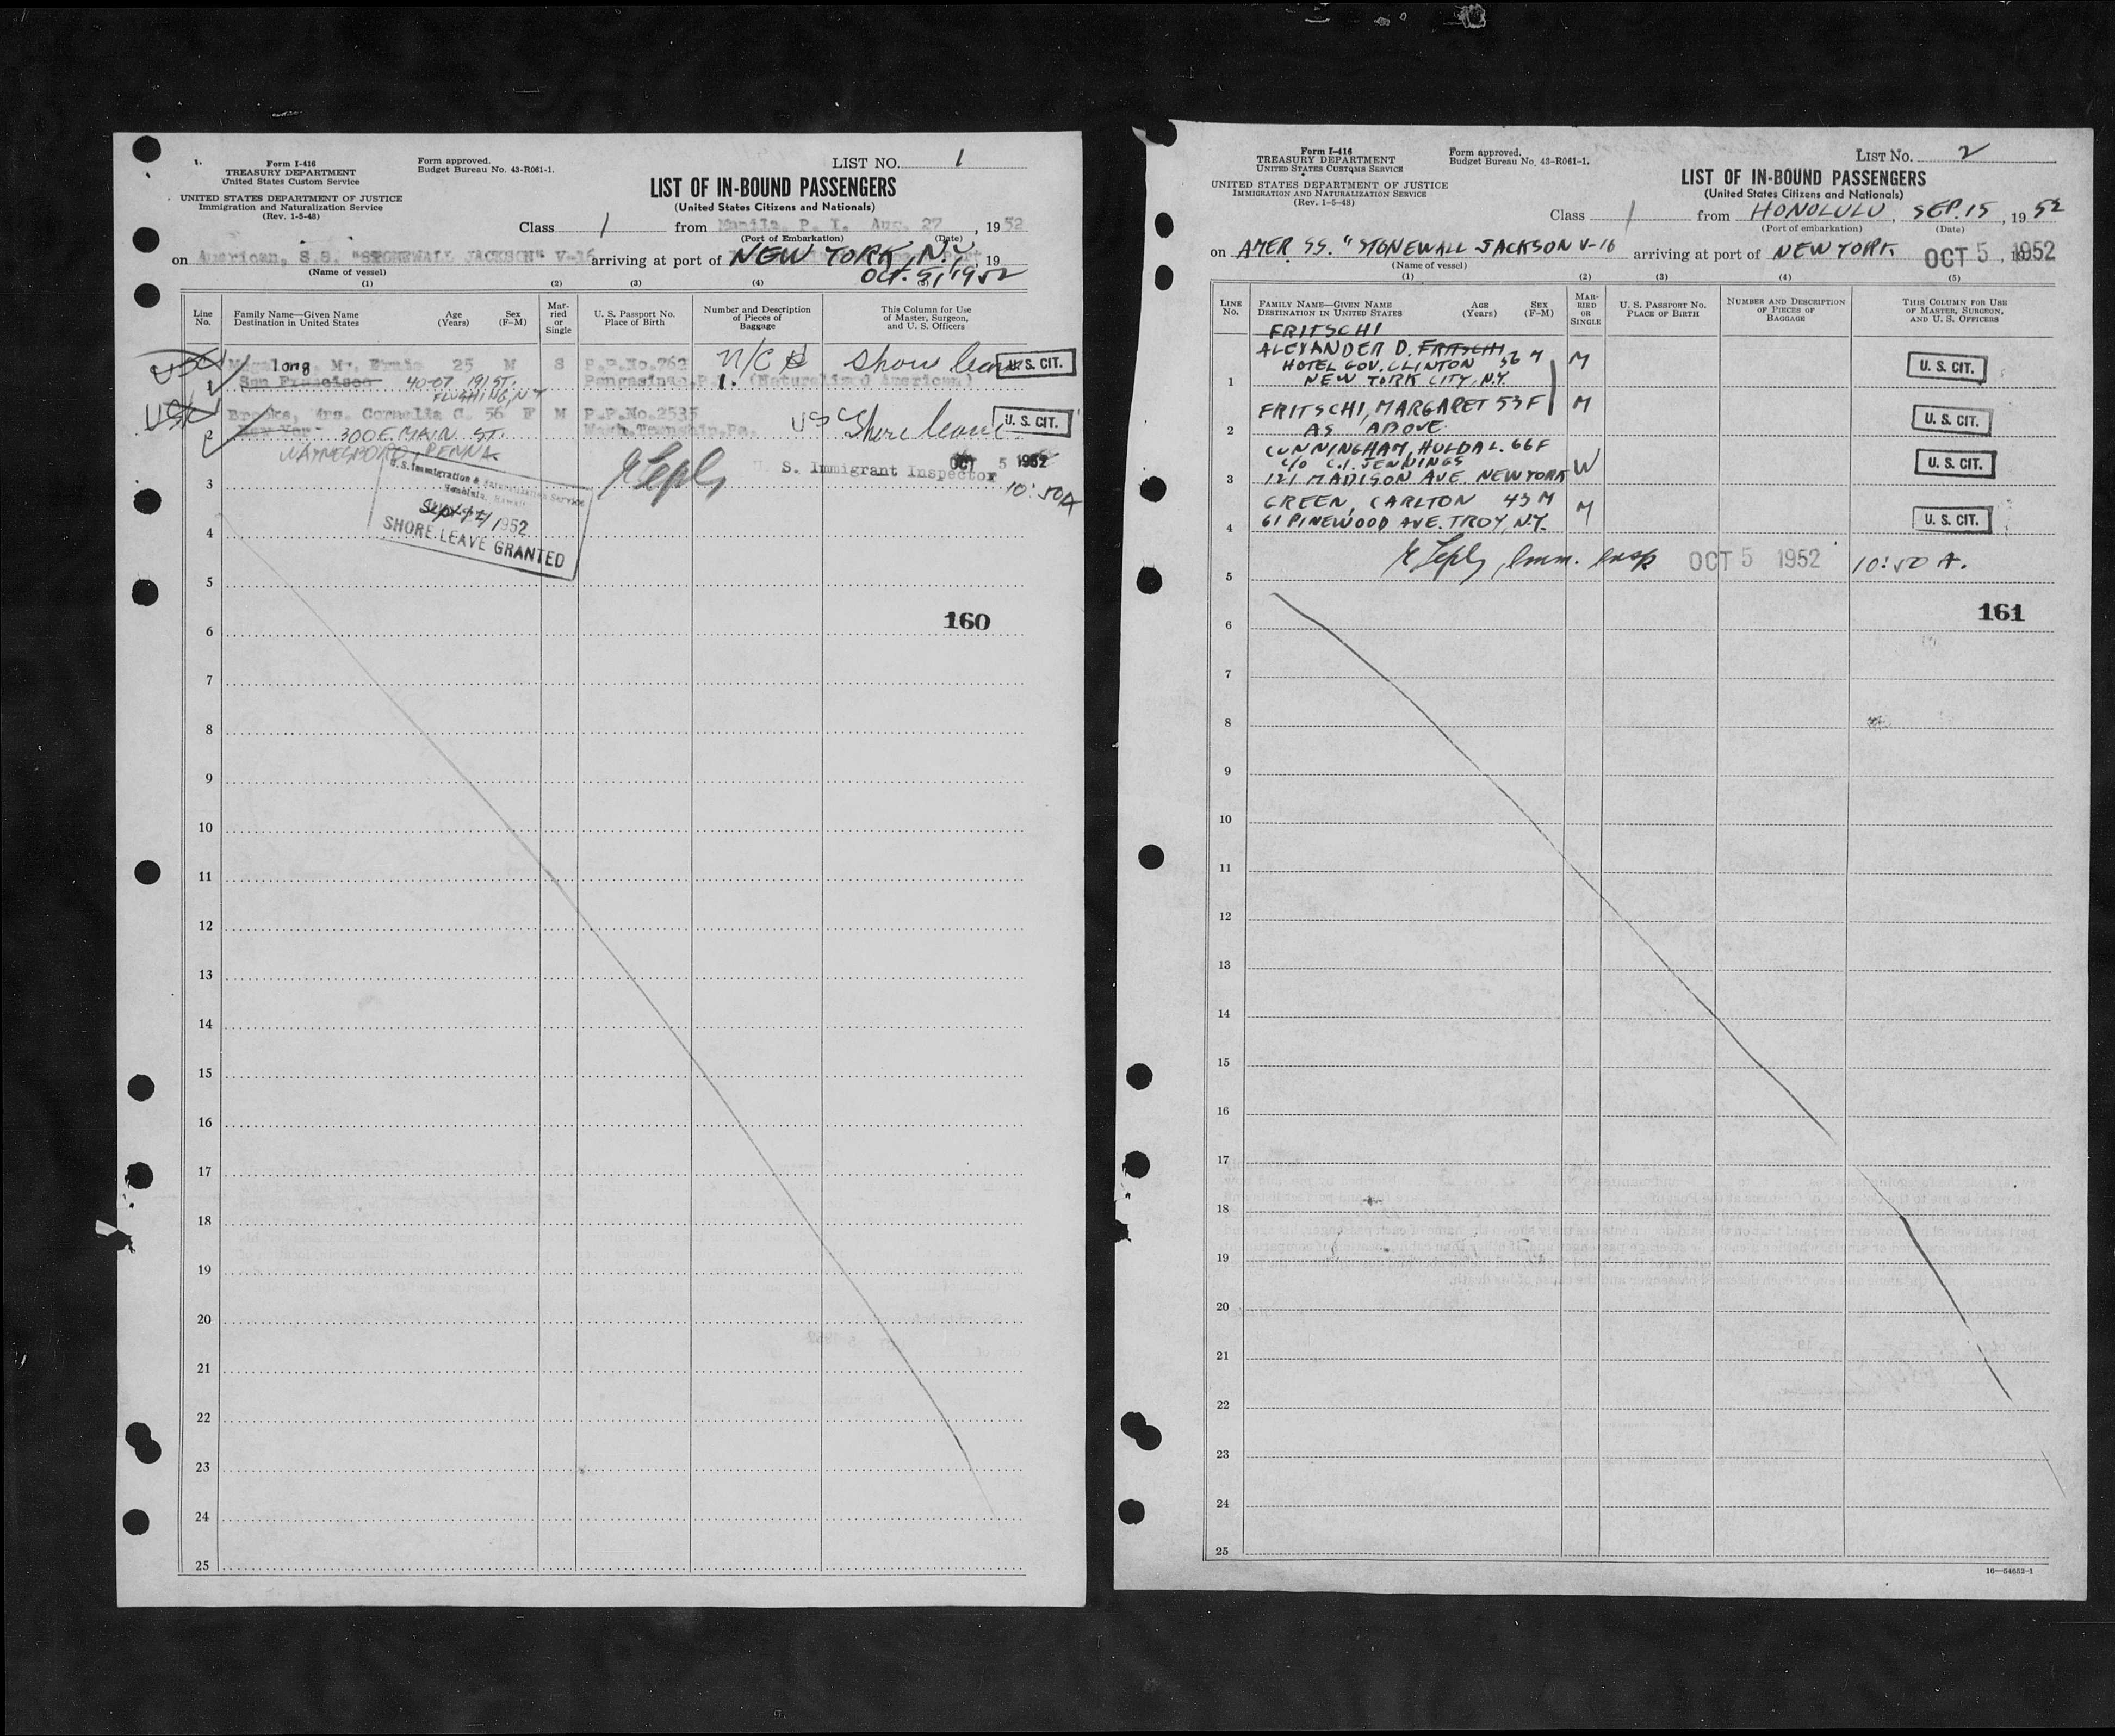 Form I-416
TREASURY DEPARTMENT
United States Custom Service
UNITED STATES DEPARTMENT OF JUSTICE
Immigration and Naturalization Service
(Rev. 1-5-48)
Form approved.
Budget Bureau No. 43-R061-1.
LIST NO. 1
LIST OF IN-BOUND PASSENGERS
(United States Citizens and Nationals)
Class 1 from Manila, P. I. Aug. 27, 1952
(Port of Embarkation) (Date)
on American, S.S. "STONEWALL JACKSON" V-16 arriving at port of NEW YORK, N.Y., 19
(Name of vessel) OCT. 5, 1952
(1) (2) (3) (4) (5)
Line No. Family Name—Given Name Destination in United States Age (Years) Sex (F-M) Married or Single U. S. Passport No. Place of Birth Number and Description of Pieces of Baggage This Column for Use of Master, Surgeon, and U. S. Officers
long, Mr. Ernie 25 M S P.P.No.762 N/C Shore leave U. S. CIT.
1 San Francisco 40-07 191 ST. Pangasinan, P.I. (Naturalized American)
FLUSHING, NY
Brooks, Mrs. Cornelia C. 56 F M P.P.No.2535 USC Shore leave U. S. CIT.
2 New Yor 300 E. MAIN ST. Wash.Township,Pa.
WAYNESBORO, PENNA
U. S. Immigration & Naturalization Service
Honolulu, Hawaii
1952
SHORE LEAVE GRANTED
U. S. Immigrant Inspector OCT 5 1952
10:50A
3
4
5
160
6
7
8
9
10
11
12
13
14
15
16
17
18
19
20
21
22
23
24
25
Form I-416
TREASURY DEPARTMENT
UNITED STATES CUSTOMS SERVICE
UNITED STATES DEPARTMENT OF JUSTICE
IMMIGRATION AND NATURALIZATION SERVICE
(Rev. 1-5-48)
Form approved.
Budget Bureau No. 43-R061-1.
LIST NO. 2
LIST OF IN-BOUND PASSENGERS
(United States Citizens and Nationals)
Class 1 from HONOLULU, SEP. 15, 1952
(Port of embarkation) (Date)
on AMER. SS. "STONEWALL JACKSON V-16 arriving at port of NEW YORK OCT 5, 1952
(Name of vessel)
(1) (2) (3) (4) (5)
LINE NO. FAMILY NAME—GIVEN NAME DESTINATION IN UNITED STATES AGE (Years) SEX (F-M) MARRIED OR SINGLE U. S. PASSPORT NO. PLACE OF BIRTH NUMBER AND DESCRIPTION OF PIECES OF BAGGAGE THIS COLUMN FOR USE OF MASTER, SURGEON, AND U. S. OFFICERS
FRITSCHI
ALEXANDER D. FRITSCHI 56 M M U. S. CIT.
HOTEL GOV. CLINTON
1 NEW YORK CITY, N.Y.
FRITSCHI, MARGARET 53 F M U. S. CIT.
2 AS ABOVE
CUNNINGHAM, HULDA L. 66 F W U. S. CIT.
C/O C.I. JENNINGS
3 121 MADISON AVE. NEW YORK
GREEN, CARLTON 43 M M U. S. CIT.
4 61 PINEWOOD AVE. TROY, N.Y.
Imm. Insp OCT 5 1952 10:50 A.
5
161
6
7
8
9
10
11
12
13
14
15
16
17
18
19
20
21
22
23
24
25
16—54652-1